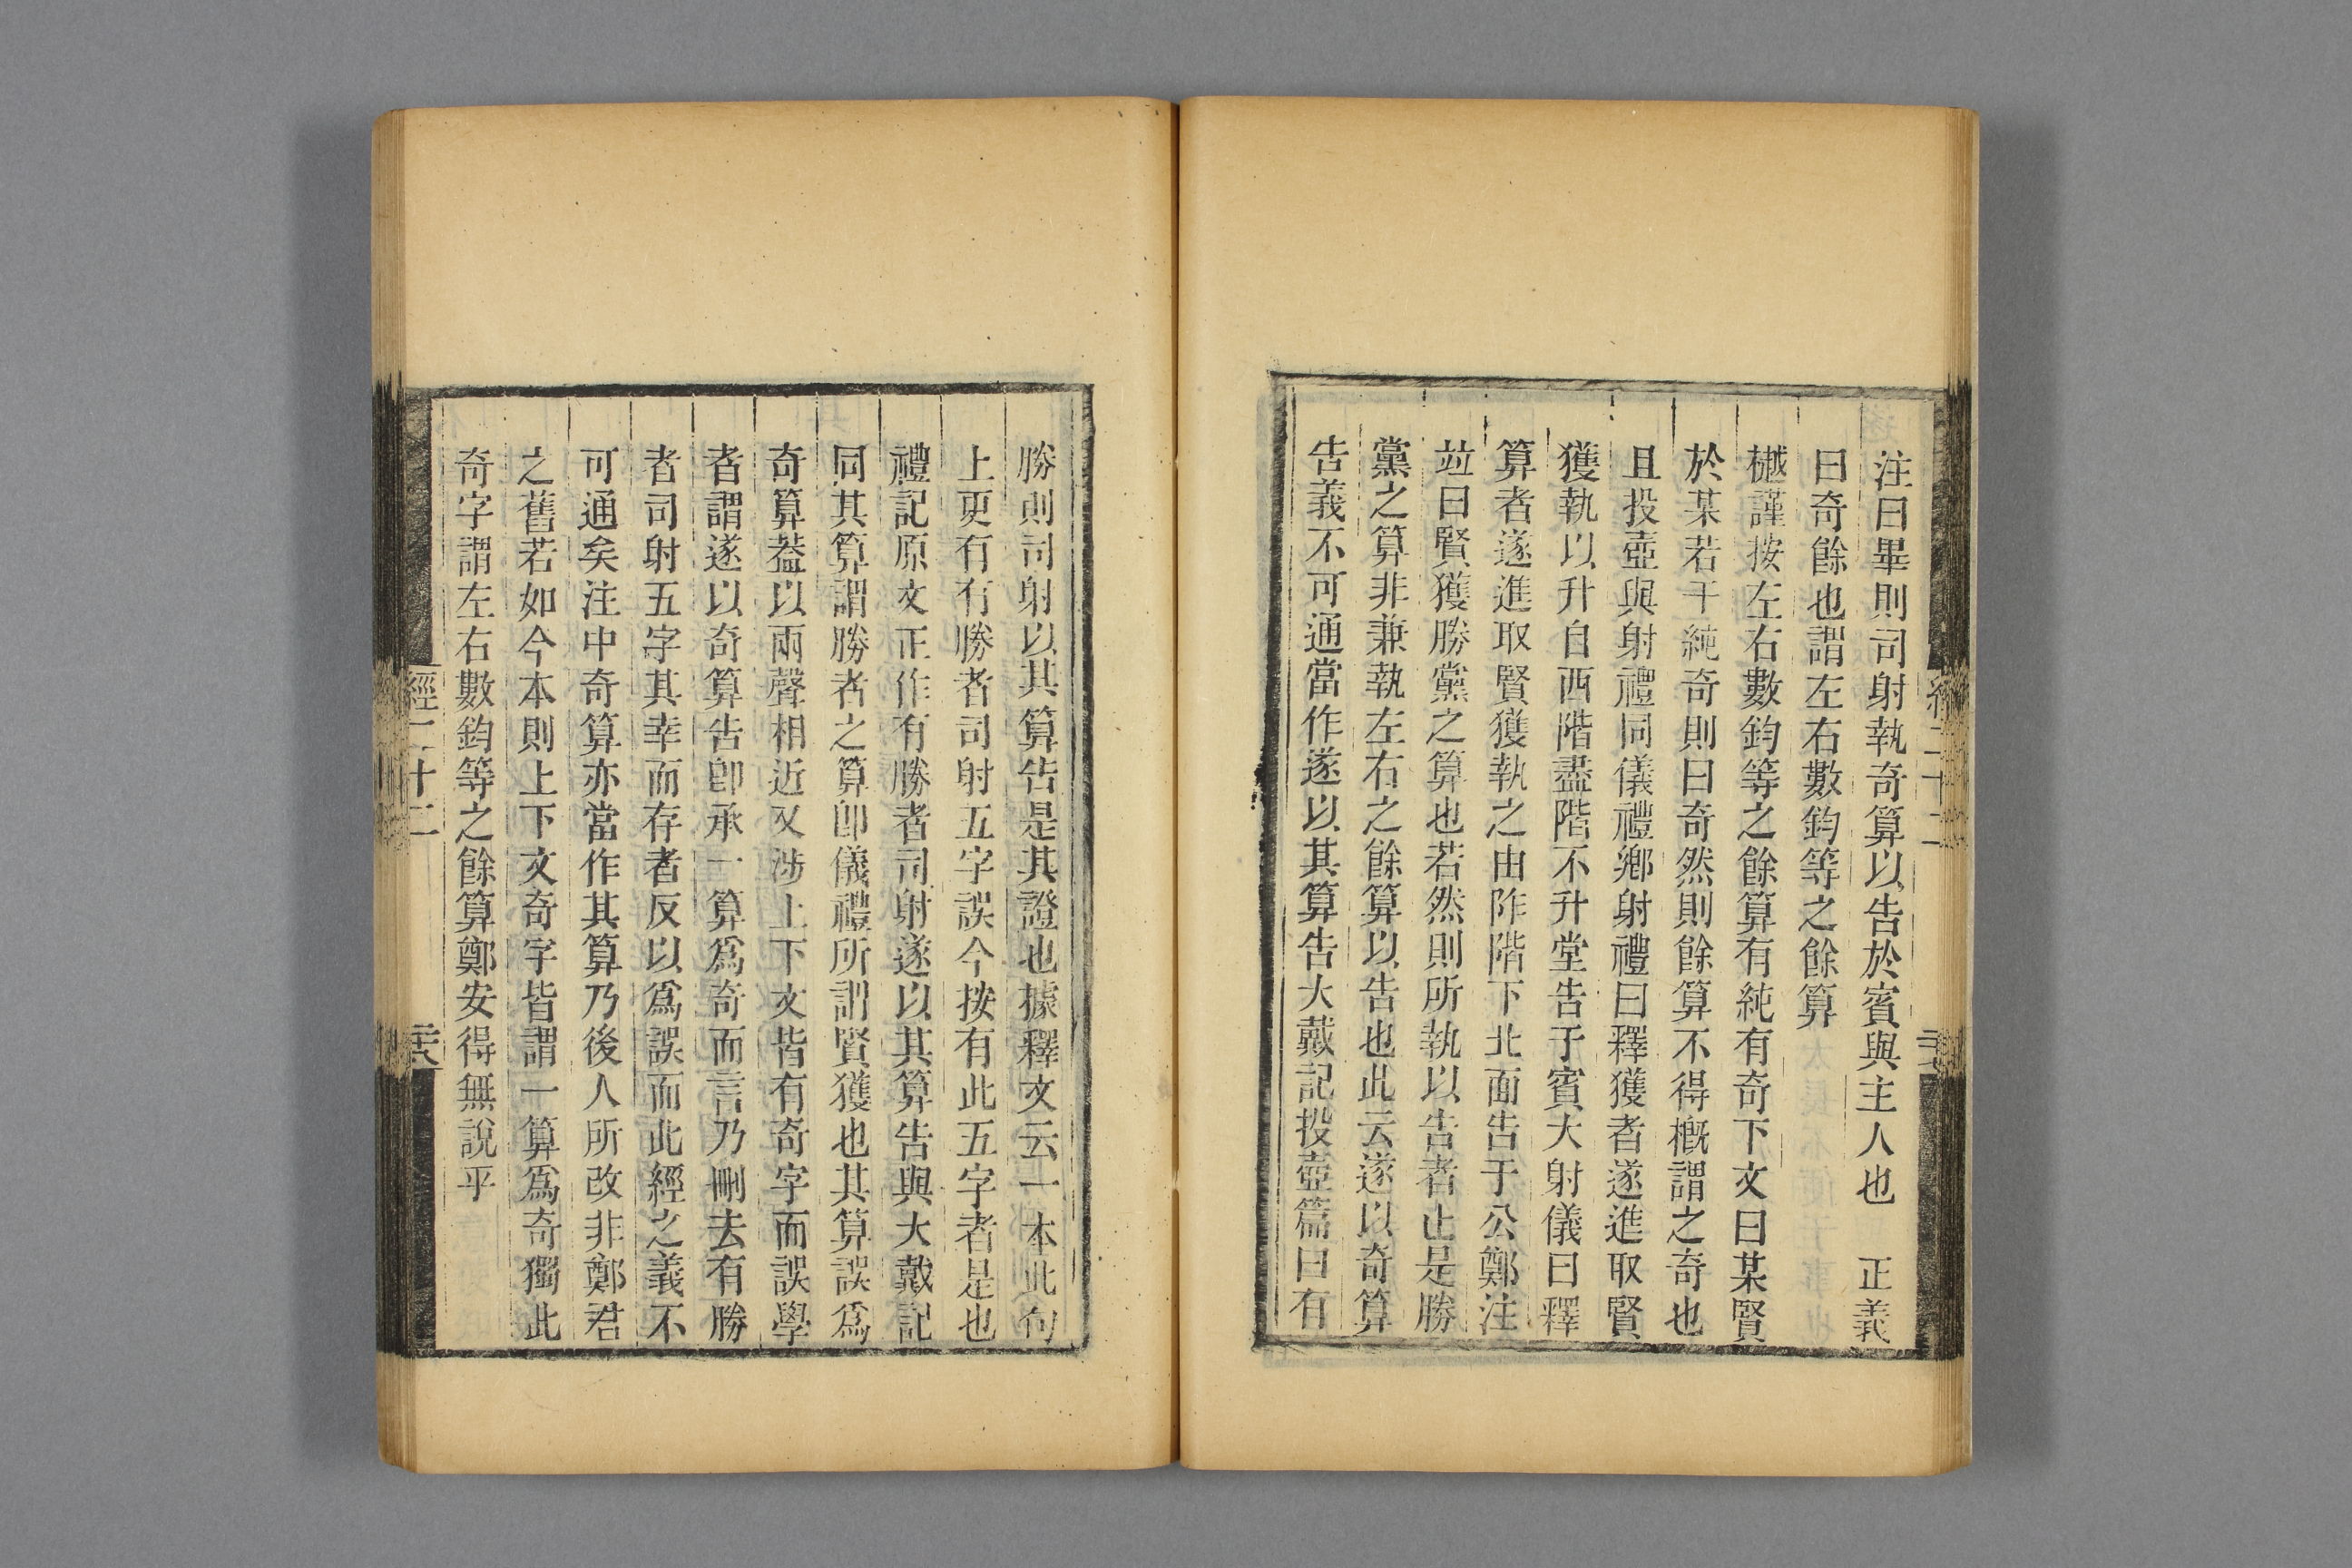 注曰畢則司射執奇算以告於賓與主人也　正義
曰奇餘也謂左右數鈞等之餘算
樾謹按左右數鈞等之餘算有純有奇下文曰某賢
於某若干純奇則曰奇然則餘算不得槪謂之奇也
且投壺與射禮同儀禮鄕射禮曰釋獲者遂進取賢
獲執以升自西階盡階不升堂告于賓大射儀曰釋
算者遂進取賢獲執之由阼階下北面告于公鄭注
竝曰賢獲勝黨之算也若然則所執以告者止是勝
黨之算非兼執左右之餘算以告也此云遂以奇算
告義不可通當作遂以其算告大戴記投壺篇曰有
經二十二
勝則司射以其算告是其證也據釋文云一本此句
上更有有勝者司射五字誤今按有此五字者是也
禮記原文正作有勝者司射遂以其算告與大戴記
同其算謂勝者之算卽儀禮所謂賢獲也其算誤爲
奇算葢以兩聲相近又涉上下文皆有奇字而誤學
者謂遂以奇算告卽承一算爲奇而言乃刪去有勝
者司射五字其幸而存者反以爲誤而此經之義不
可通矣注中奇算亦當作其算乃後人所改非鄭君
之舊若如今本則上下文奇字皆謂一算爲奇獨此
奇字謂左右數鈞等之餘算鄭安得無說乎
經二十二